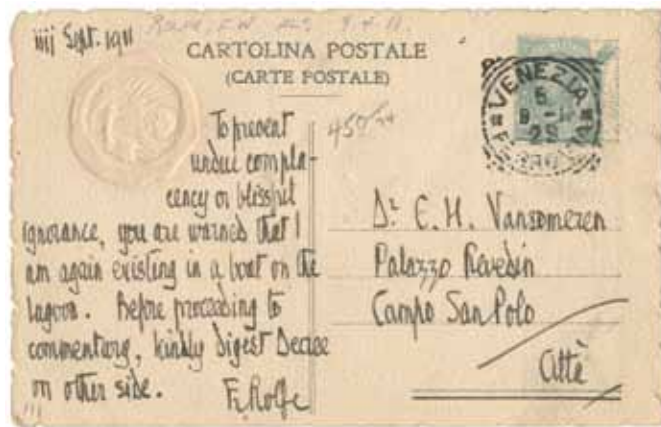 iiij Sept. 1911
Rolfe, F. W.
CARTOLINA POSTALE
(CARTE POSTALE)
To prevent
undue compla-
cency or blissful
ignorance, you are warned that I
am again existing in a boat on the
lagoon. Before proceeding to
commentary, kindly digest Decree
on other side.
Fr. Rolfe
VENEZIA
Dr. E. H. Vansomeren
Palazzo Revedin
Campo San Polo
Città